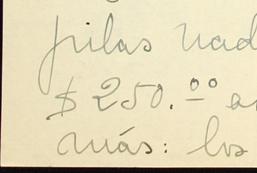 pilas nad
$250.00 a
más: los